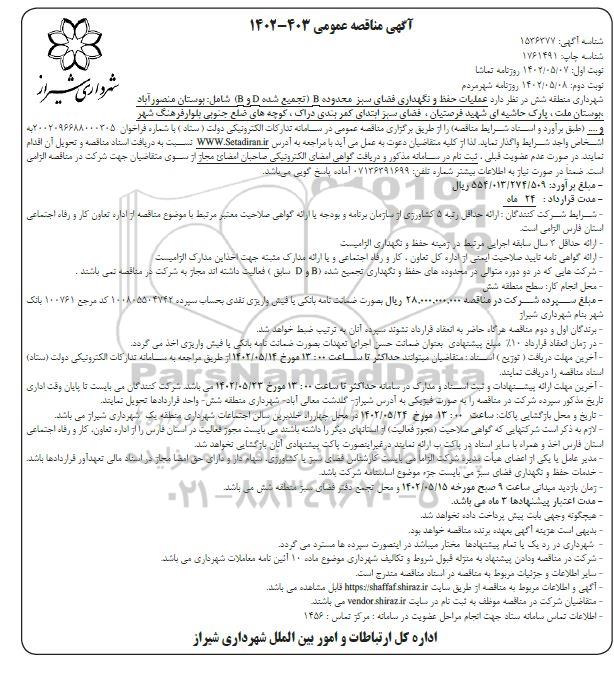 آگهی مناقصه عمومی ۴۰۳-۱۴۰۲
شهرداری شیراز
شناسه آگهی: ۱۵۳۶۳۷۷
شناسه چاپ: ۱۷۶۱۴۹۱
نوبت اول: ۱۴۰۲/۰۵/۰۷ روزنامه تماشا
نوبت دوم: ۱۴۰۲/۰۵/۰۸ روزنامه شهرمردم
شهرداری منطقه شش در نظر دارد عملیات حفظ و نگهداری فضای سبز محدوده B (تجمیع شده D و B) شامل: بوستان منصور آباد
،بوستان ملت ، پارک حاشیه ای شهید فرصتیان ، فضای سبز ابتدای کمر بندی دراک ، کوچه های ضلع جنوبی بلوار فرهنگ شهر
و ..... (طبق برآورد و اسناد شرایط مناقصه) را از طریق برگزاری مناقصه عمومی در سامانه تدارکات الکترونیکی دولت ( ستاد ) با شماره فراخوان ۲۰۰۲۰۹۶۶۸۸۰۰۰۳۰۵به
اشخاص واجد شرایط واگذار نماید. لذا از کلیه متقاضیان دعوت به عمل می آید با مراجعه به آدرس WWW.Setadiran.ir نسبت به دریافت اسناد مناقصه و تحویل آن اقدام
نمایند. در صورت عدم عضویت قبلی ، ثبت نام در سامانه مذکور و دریافت گواهی امضای الکترونیکی صاحبان امضائ مجاز از سوی متقاضیان جهت شرکت در مناقصه الزامی
است. ضمنا در صورت نیاز به اطلاعات بیشتر شماره تلفن: ۰۷۱۳۶۳۹۱۶۹۹ آماده پاسخ گویی می‌باشد.
- مبلغ برآورد: ۵۵۴/۰۱۳/۲۷۴/۵۰۹ ریال
- مدت قرارداد : ۲۴ ماه
- شرایط شرکت کنندگان : ارائه حداقل رتبه ۵ کشاورزی از سازمان برنامه و بودجه یا ارائه گواهی صلاحیت معتبر مرتبط با موضوع مناقصه از اداره تعاون کار و رفاه اجتماعی
استان فارس الزامی است.
- ارائه حداقل ۳ سال سابقه اجرایی مرتبط در زمینه حفظ و نگهداری الزامیست
- ارائه گواهی نامه تایید صلاحیت ایمنی از اداره کل تعاون ، کار و رفاه اجتماعی و یا ارائه مدارک مثبته جهت اخذاین مدارک الزامیست
- شرکت هایی که در دو دوره متوالی در محدوده های حفظ و نگهداری تجمیع شده (B و D سابق ) فعالیت داشته اند مجاز به شرکت در مناقصه نمی باشند .
- محل انجام کار: سطح منطقه شش
- مبلغ سپرده شرکت در مناقصه ۲۸,۰۰۰,۰۰۰,۰۰۰ ریال بصورت ضمانت نامه بانکی یا فیش واریزی نقدی بحساب سپرده ۱۰۰۸۰۵۵۰۴۷۴۲ کد مرجع ۱۰۰۷۶۱ بانک
شهر بنام شهرداری شیراز
- برندگان اول و دوم مناقصه هرگاه حاضر به انعقاد قرارداد نشوند سپرده آنان به ترتیب ضبط خواهد شد.
- در زمان انعقاد قرارداد ۱۰٪ مبلغ پیشنهادی بعنوان ضمانت حسن اجرای تعهدات بصورت ضمانت نامه بانکی یا فیش واریزی اخذ می گردد.
- آخرین مهلت دریافت ( توزیع ) اسناد : متقاضیان میتوانند حداکثر تا ساعت ۱۳:۰۰ مورخ ۱۴۰۲/۰۵/۱۴ از طریق مراجعه به سامانه تدارکات الکترونیکی دولت (ستاد)
اسناد مناقصه را دریافت نمایند.
- آخرین مهلت ارائه پیشنهادات و ثبت اسناد و مدارک در سامانه حداکثر تا ساعت ۱۳:۰۰ مورخ ۱۴۰۲/۰۵/۲۳ می باشد. شرکت کنندگان می بایست تا پایان وقت اداری
تاریخ مذکور سپرده شرکت در مناقصه را به صورت فیزیکی به آدرس شیراز- گلدشت معالی آباد- شهرداری منطقه شش- واحد قراردادها تحویل نمایند.
- تاریخ و محل بازگشایی پاکات: ساعت ۱۳:۰۰ مورخ ۱۴۰۲/۰۵/۲۴ در محل چهارراه خلدبرین سالن اجتماعات شهرداری منطقه یک شهرداری شیراز می باشد.
- لازم به ذکر است شرکتهایی که گواهی صلاحیت (مجوز فعالیت) از استانهای دیگر را داشته باشند می بایست مجوز فعالیت در استان فارس را از اداره تعاون، کار و رفاه اجتماعی
استان فارس اخذ و همراه با سایر اسناد در پاکت ب ارائه نمایند درغیراینصورت پاکت پیشنهادی آنان بازگشایی نخواهد شد.
- مدیر عامل یا یکی از اعضای هیأت مدیره شرکت الزاماً می بایست کارشناس فضای سبز یا کشاورزی، سهام دار و دارای حق امضا مجاز در اسناد مالی تعهدآور قراردادها باشد.
- خدمات حفظ و نگهداری فضای سبز می بایست جزء موضوع اساسنامه شرکت باشد.
- زمان بازدید میدانی ساعت ۹ صبح مورخه ۱۴۰۲/۰۵/۱۵ و محل تجمع دفتر فضای سبز منطقه شش می باشد.
- مدت اعتبار پیشنهادها ۳ ماه می باشد.
- هیچگونه وجهی بابت پیش پرداخت داده نخواهد شد.
- بدیهی است هزینه آگهی بعهده برنده مناقصه خواهد بود.
- شهرداری در رد یک یا تمام پیشنهادها مختار میباشد در اینصورت سپرده ها مسترد می گردد.
- شرکت در مناقصه ودادن پیشنهاد به منزله قبول شروط و تکالیف شهرداری موضوع ماده ۱۰ آئین نامه معاملات شهرداری می باشد.
- سایر اطلاعات و جزئیات مربوط به مناقصه در اسناد مناقصه مندرج است.
- آگهی و اطلاعات مربوط به مناقصه از طریق سایت https://shaffaf.shiraz.ir قابل مشاهده می باشد.
- متقاضیان شرکت در مناقصه موظف به ثبت نام در سایت vendor.shiraz.ir می باشند.
- اطلاعات تماس سامانه ستاد جهت انجام مراحل عضویت در سامانه : مرکز تماس : ۱۴۵۶
اداره کل ارتباطات و امور بین الملل شهرداری شیراز
ParsNamadData
۰۲۱-۸۸۳۴۹۶۷۰-۵